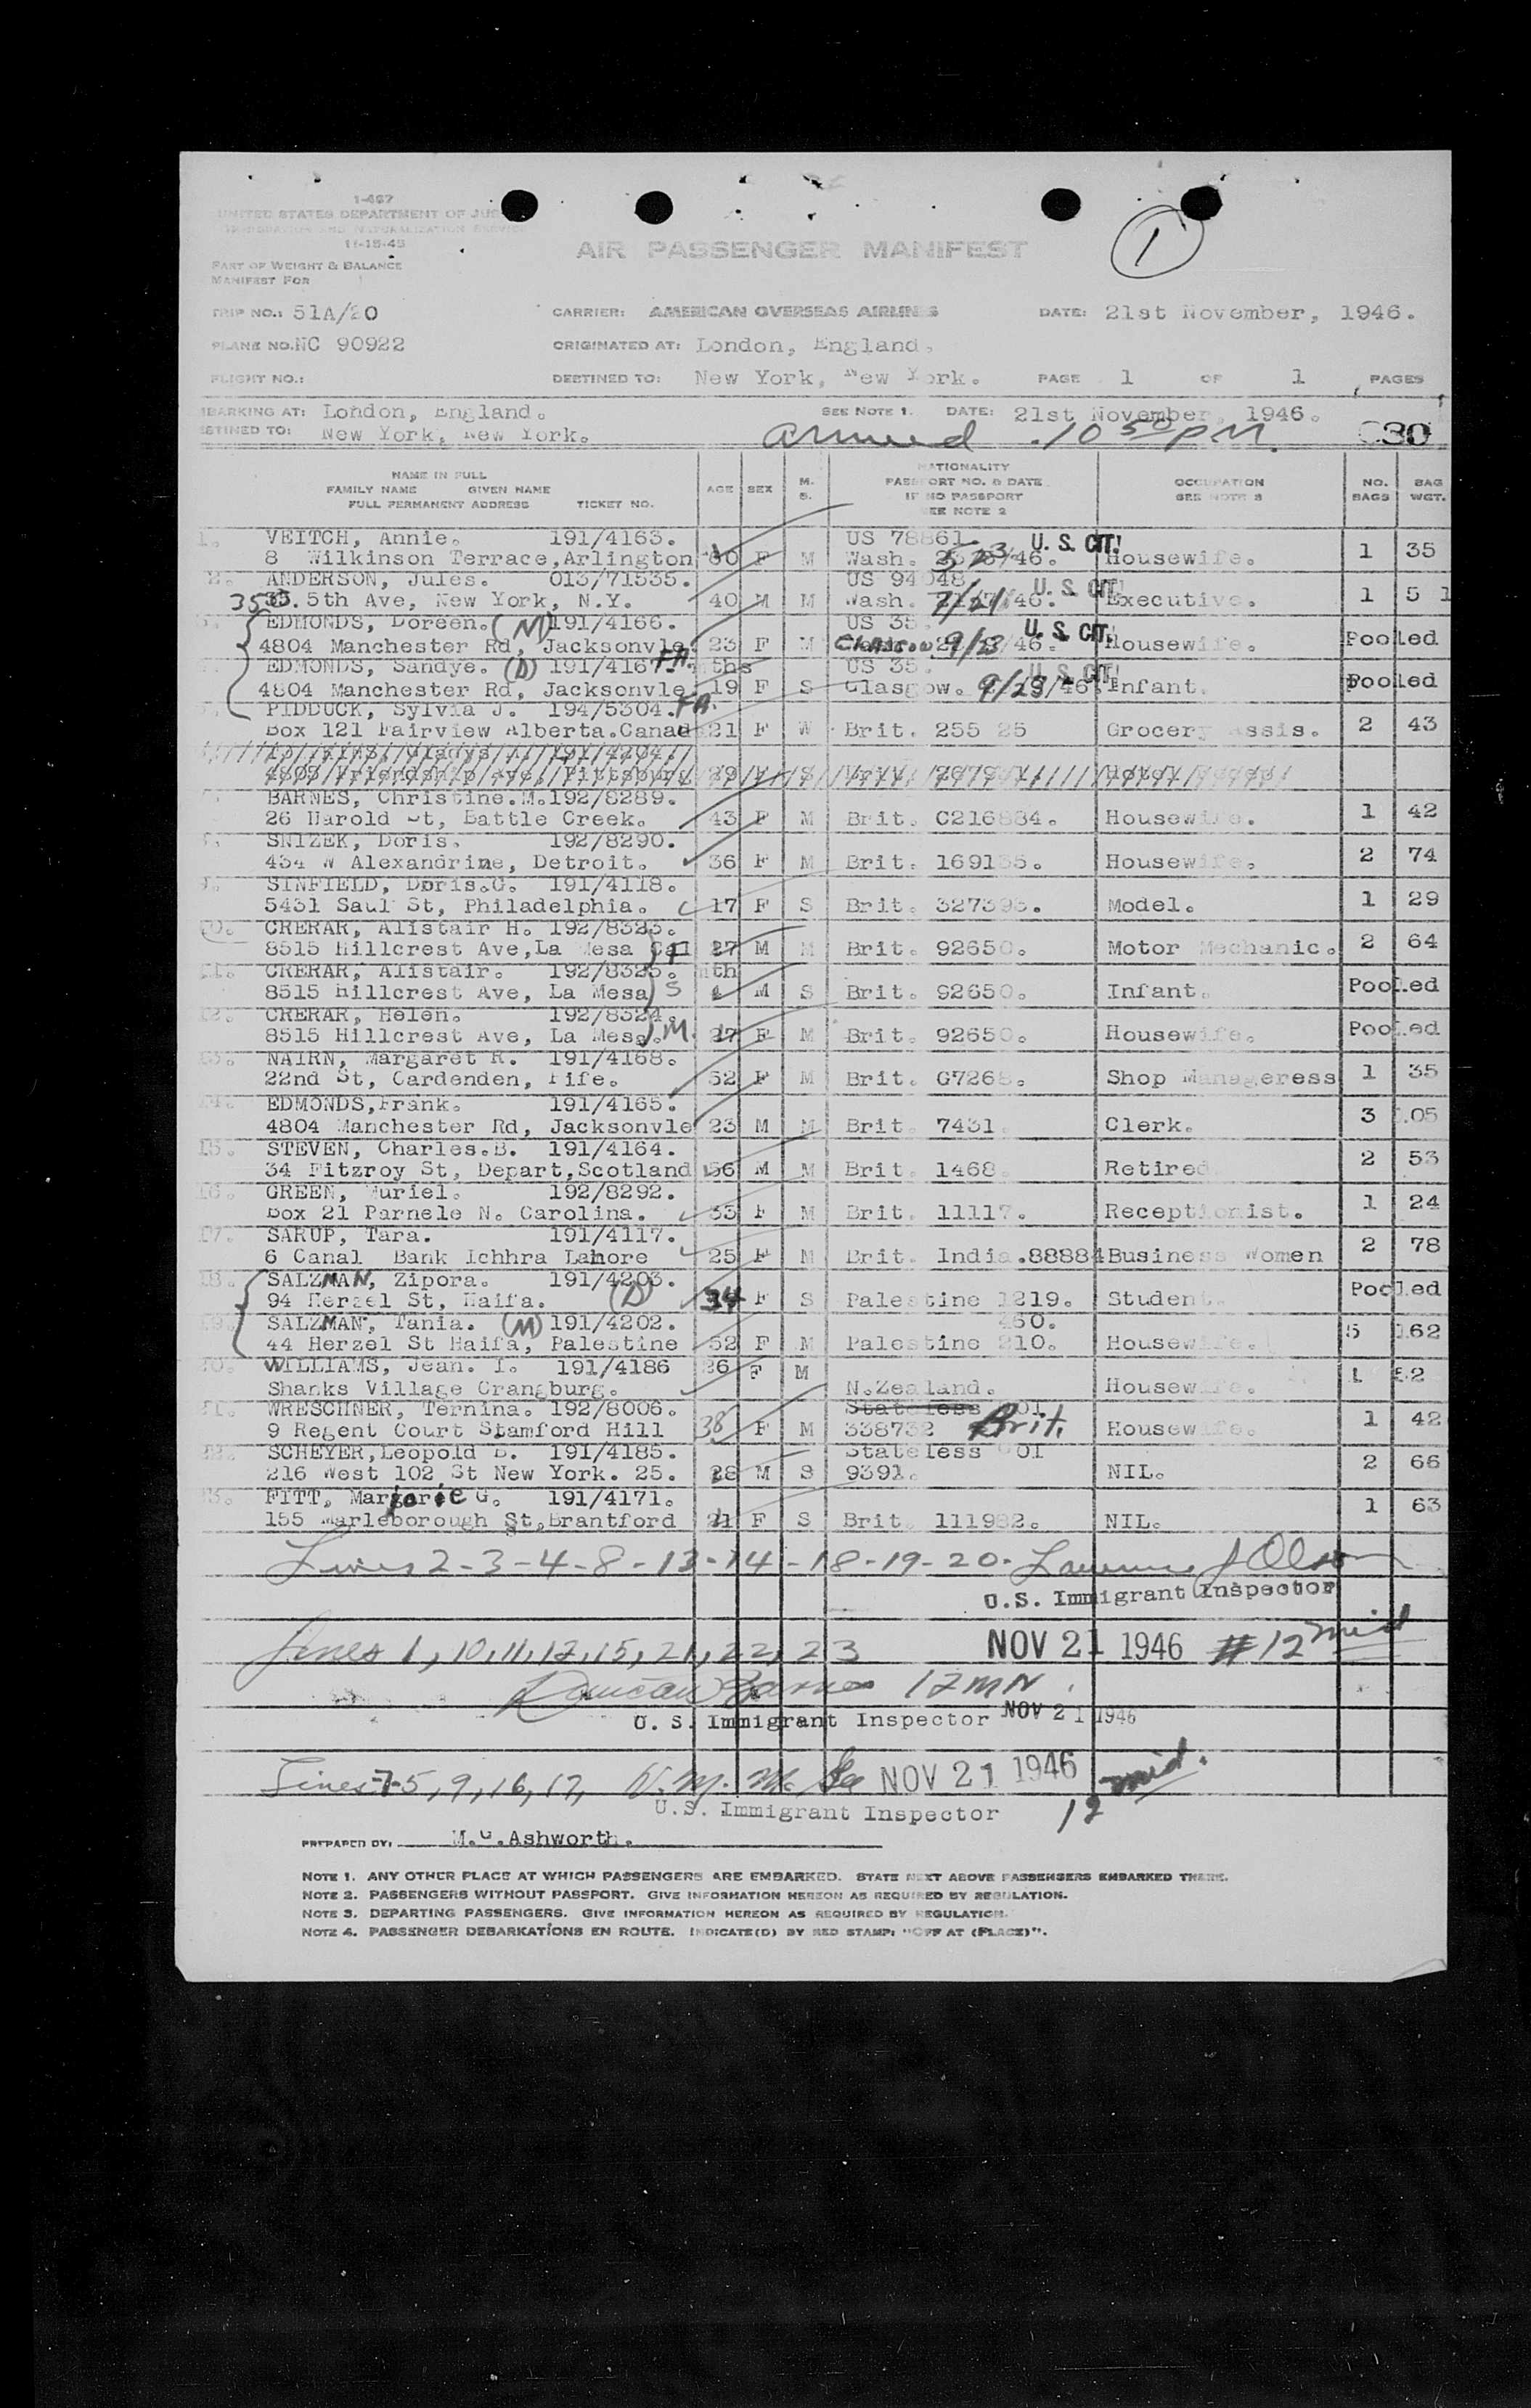 1-467
UNITED STATES DEPARTMENT OF JUS
IMMIGRATION AND NATURALIZATION SERVICE
11-15-45
1
AIR PASSENGER MANIFEST
PART OF WEIGHT & BALANCE
MANIFEST FOR
TRIP NO.: 51A/20 CARRIER: AMERICAN OVERSEAS AIRLINES DATE: 21st November, 1946.
PLANE NO. NC 90922 ORIGINATED AT: London, England.
FLIGHT NO.: DESTINED TO: New York, New York. PAGE 1 OF 1 PAGES
MBARKING AT: London, England. SEE NOTE 1. DATE: 21st November, 1946.
ESTINED TO: New York, New York. arrived 10 50 PM 30
NAME IN FULL
FAMILY NAME GIVEN NAME
FULL PERMANENT ADDRESS TICKET NO. AGE SEX M. S. NATIONALITY PASSPORT NO. & DATE IF NO PASSPORT SEE NOTE 2 OCCUPATION SEE NOTE 3 NO. BAGS BAG WGT.
1. VEITCH, Annie. 191/4163. US 78861 U. S. CIT!
8 Wilkinson Terrace, Arlington 60 F M Wash. 5/23/46. Housewife. 1 35
2. ANDERSON, Jules. 013/71535. US 94048 U. S. CIT!
350. 5th Ave, New York, N.Y. 40 M M Wash. 7/21/46. Executive. 1 5 1
EDMONDS, Doreen. (M) 191/4166. US 35. U. S. CIT.
4804 Manchester Rd, Jacksonvle. FA. 23 F M Glasgow 9/23/46. Housewife. Pooled
EDMONDS, Sandye. (D) 191/4167. mths US 35. U. S. CIT!
4804 Manchester Rd, Jacksonvle FA. 19 F S Glasgow. 9/23/46. Infant. Pooled
PIDDUCK, Sylvia J. 194/5304.
Box 121 Fairview Alberta. Canad 21 F W Brit. 255 25 Grocery Assis. 2 43
BARNES, Christine. M. 192/8289.
26 Harold St, Battle Creek. 43 F M Brit. C216884. Housewife. 1 42
SNIZEK, Doris. 192/8290.
434 W Alexandrine, Detroit. 36 F M Brit. 169135. Housewife. 2 74
9. SINFIELD, Doris. G. 191/4118.
5431 Saul St, Philadelphia. 17 F S Brit. 327393. Model. 1 29
10. CRERAR, Alistair H. 192/8323.
8515 Hillcrest Ave, La Mesa Cal F 27 M M Brit. 92650. Motor Mechanic. 2 64
11. CRERAR, Alistair. 192/8325. mth
8515 Hillcrest Ave, La Mesa S M S Brit. 92650. Infant. Pooled
12. CRERAR, Helen. 192/8324.
8515 Hillcrest Ave, La Mesa. M. 27 F M Brit. 92650. Housewife. Pooled
13. NAIRN, Margaret R. 191/4168.
22nd St, Cardenden, Fife. 52 F M Brit. G7268. Shop Manageress 1 35
14. EDMONDS, Frank. 191/4165.
4804 Manchester Rd, Jacksonvle 23 M M Brit. 7431. Clerk. 3 105
15. STEVEN, Charles. B. 191/4164.
34 Fitzroy St, Depart, Scotland 56 M M Brit. 1468. Retired 2 53
16. GREEN, Muriel. 192/8292.
Box 21 Parnele N. Carolina. 33 F M Brit. 11117. Receptionist. 1 24
17. SARUP, Tara. 191/4117.
6 Canal Bank Ichhra Lahore 25 F M Brit. India. 88884 Business Women 2 78
18. SALZMAN, Zipora. 191/4203.
94 Herzel St, Haifa. (D) 34 F S Palestine 1219. Student. Pooled
19. SALZMAN, Tania. (M) 191/4202. 460.
44 Herzel St Haifa, Palestine 52 F M Palestine 210. Housewife. 5 162
20. WILLIAMS, Jean. I. 191/4186 26 F M
Shanks Village Orangburg. N. Zealand. Housewife. 1 52
21. WRESCHNER, Ternina. 192/8006. Stateless 01
9 Regent Court Stamford Hill 38 F M 338732 Brit. Housewife. 1 42
22. SCHEYER, Leopold B. 191/4185. Stateless 01
216 West 102 St New York. 25. 28 M S 9391. NIL. 2 66
23. FITT, Marjorie G. 191/4171.
155 Marleborough St, Brantford 21 F S Brit. 111982. NIL. 1 63
Lines 2-3-4-8-13-14-18-19-20. Lawrence J Olson
U.S. Immigrant Inspector
Lines 1, 10, 11, 12, 15, 21, 22, 23 NOV 21 1946 #12 mid
Duncan 12 MN
U. S. Immigrant Inspector NOV 21 1946
Lines 7-5, 9, 16, 17, NOV 21 1946 12 mid.
U.S. Immigrant Inspector
PREPARED BY: M.G. Ashworth.
NOTE 1. ANY OTHER PLACE AT WHICH PASSENGERS ARE EMBARKED. STATE NEXT ABOVE PASSENGERS EMBARKED THERE.
NOTE 2. PASSENGERS WITHOUT PASSPORT. GIVE INFORMATION HEREON AS REQUIRED BY REGULATION.
NOTE 3. DEPARTING PASSENGERS. GIVE INFORMATION HEREON AS REQUIRED BY REGULATION.
NOTE 4. PASSENGER DEBARKATIONS EN ROUTE. INDICATE(D) BY RED STAMP: "OFF AT (PLACE)".